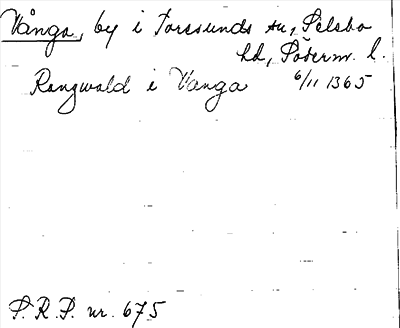 Vånga, by i Torssunds sn, Selebo
hd, Söderm. l.
Rangwald i Vanga 6/11 1365
S.R.P. nr. 675